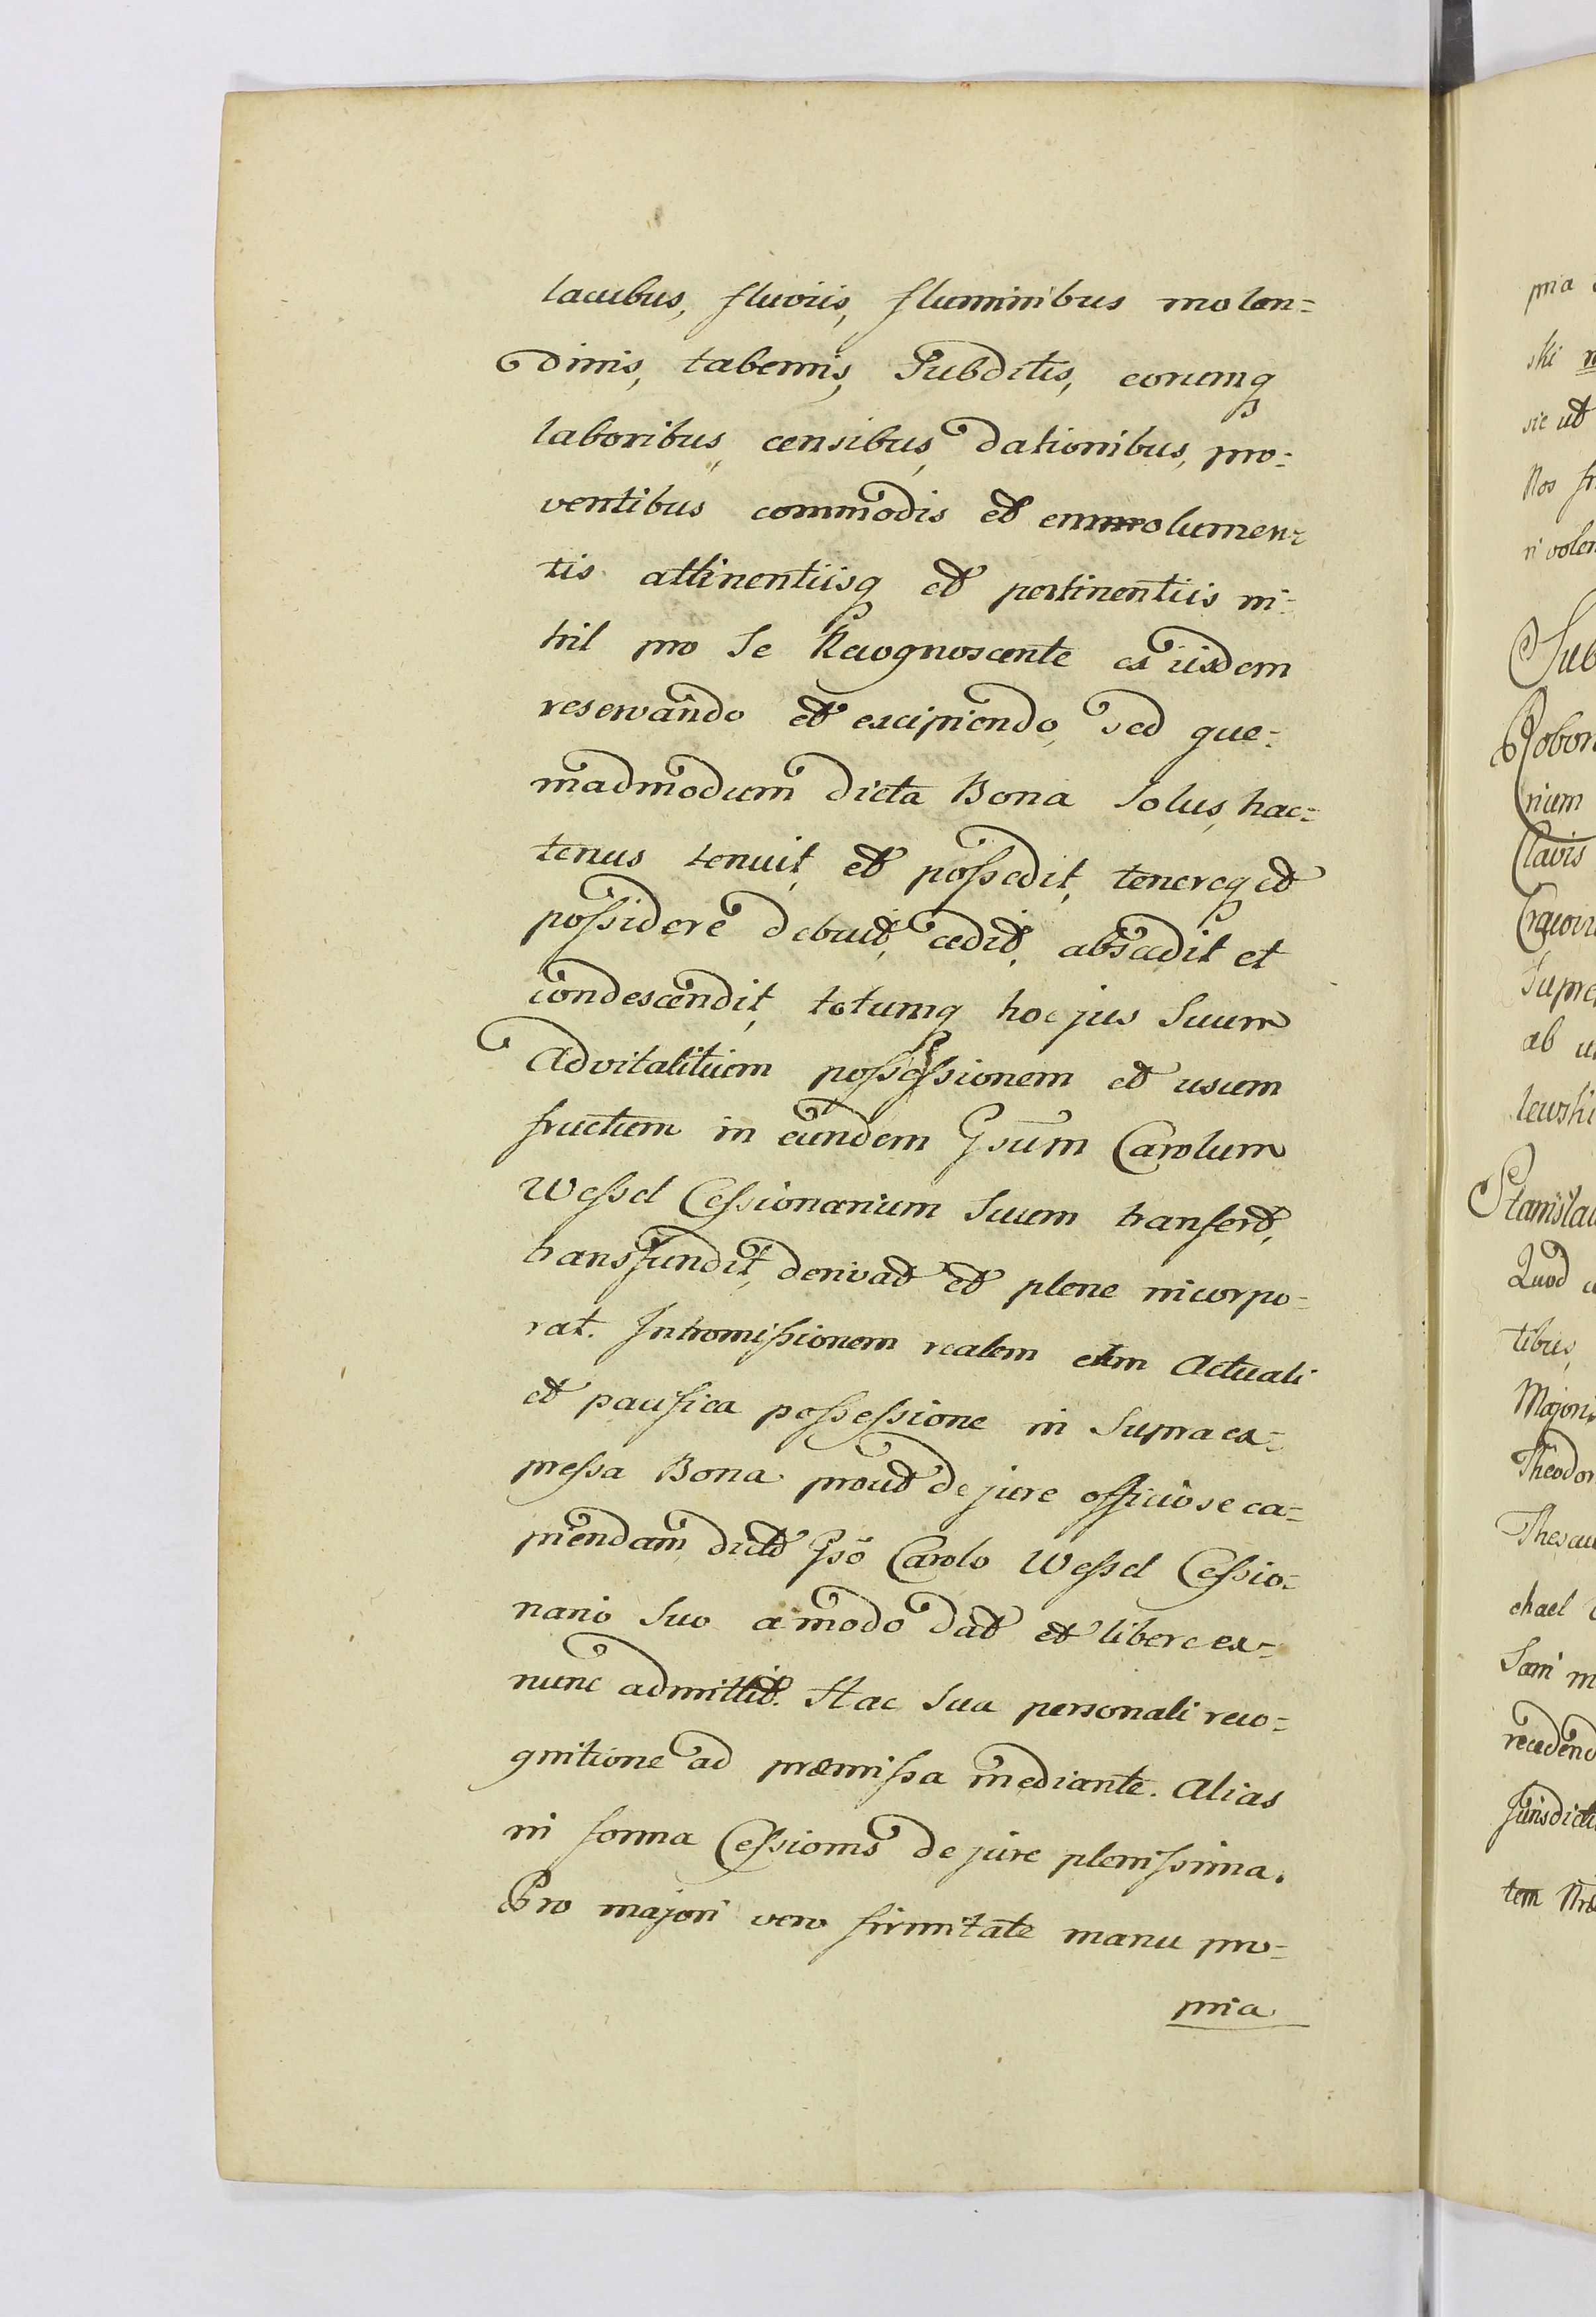 lacubus, fluviis, fluminibus molen=
dinis, tabernis, Subditis, eorumq
laboribus, censibus, dationibus, pro=
ventibus commodis et emolumen=
tis attinentiisq et pertinentiis ni=
hil pro Se Recognoscente ex iisdem
reservando et excipiendo, sed que=
madmodum dicta Bona Solus, hac=
tenus tenuit, et possedit, tenereq et
possidere debuit, cedit, abscedit et
condescendit, totumq hoc jus Suum
Advitalitium possessionem et usum
fructum in eundem Gsum Carolum
Wessel Cessionarium Suum transfert,
transfundit, derivat et plene incorpo=
rat. Intromissionem realem cum Actuali
et pacifica possessione in Supra ex=
pressa Bona prout de jure officiose ca=
piendam dicto Gso Carolo Wessel Cessio=
nario Suo amodo dat et libere ex=
nunc admittit. Hac Sua personali reco=
gnitione ad præmissa mediante. Alias
in forma Cessionis de jure plenissima.
Pro majori vero firmitate manu pro=
pria
pria
ski
sic ut
Nos
ri volen
Sub
Robor
rium
Clavis
Supre
ab
lewski
Stanislau
Quod
tibus,
Majoris
Theodor
Thesau
chael
Sani
recedend
Jurisdicti
tem